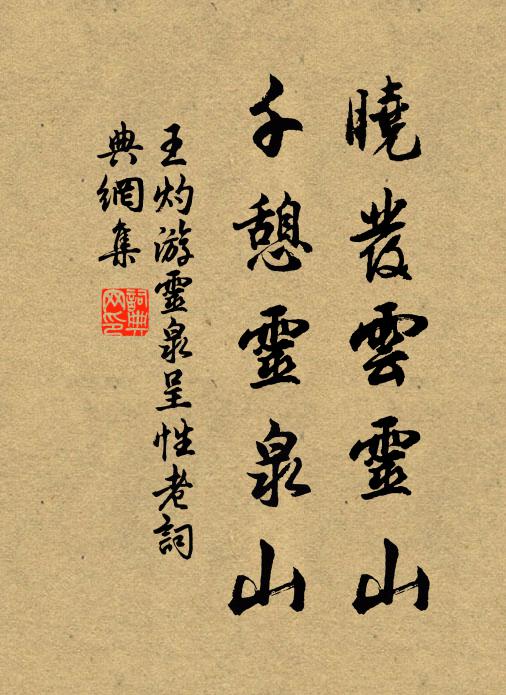 曉發雲靈山
千憩靈泉山
王灼游靈泉呈性老詞
典網集
詞典
网印